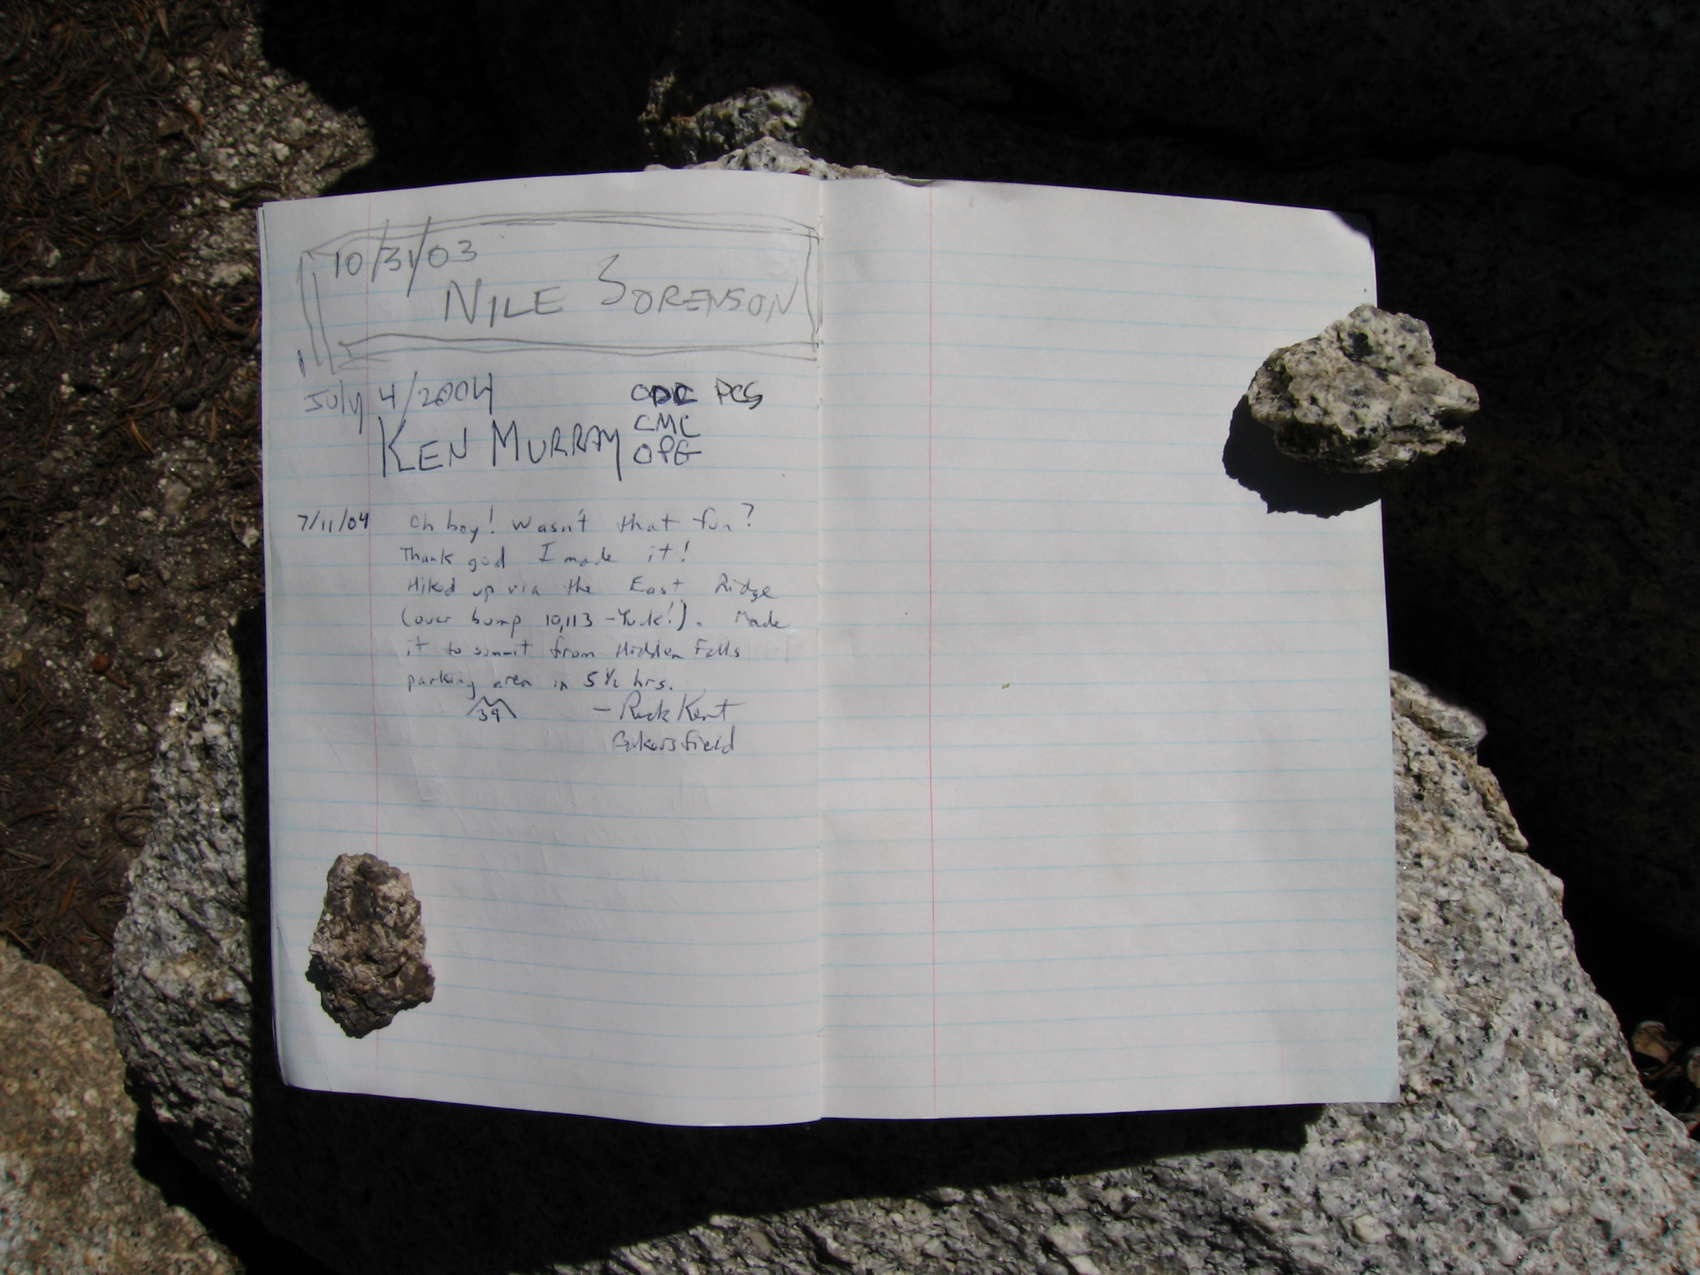 10/31/03
NILE SORENSON
July 4/2004
KEN MURRAY
PCS
CMC
OPG
7/11/04 Oh boy! Wasn't that fun?
Thank god I made it!
Hiked up via the East Ridge
(over bump 10,113 - Yuck!). Made
it to summit from Hidden Falls
parking area in 5 1/2 hrs.
39
- Rick Kent
Bakersfield